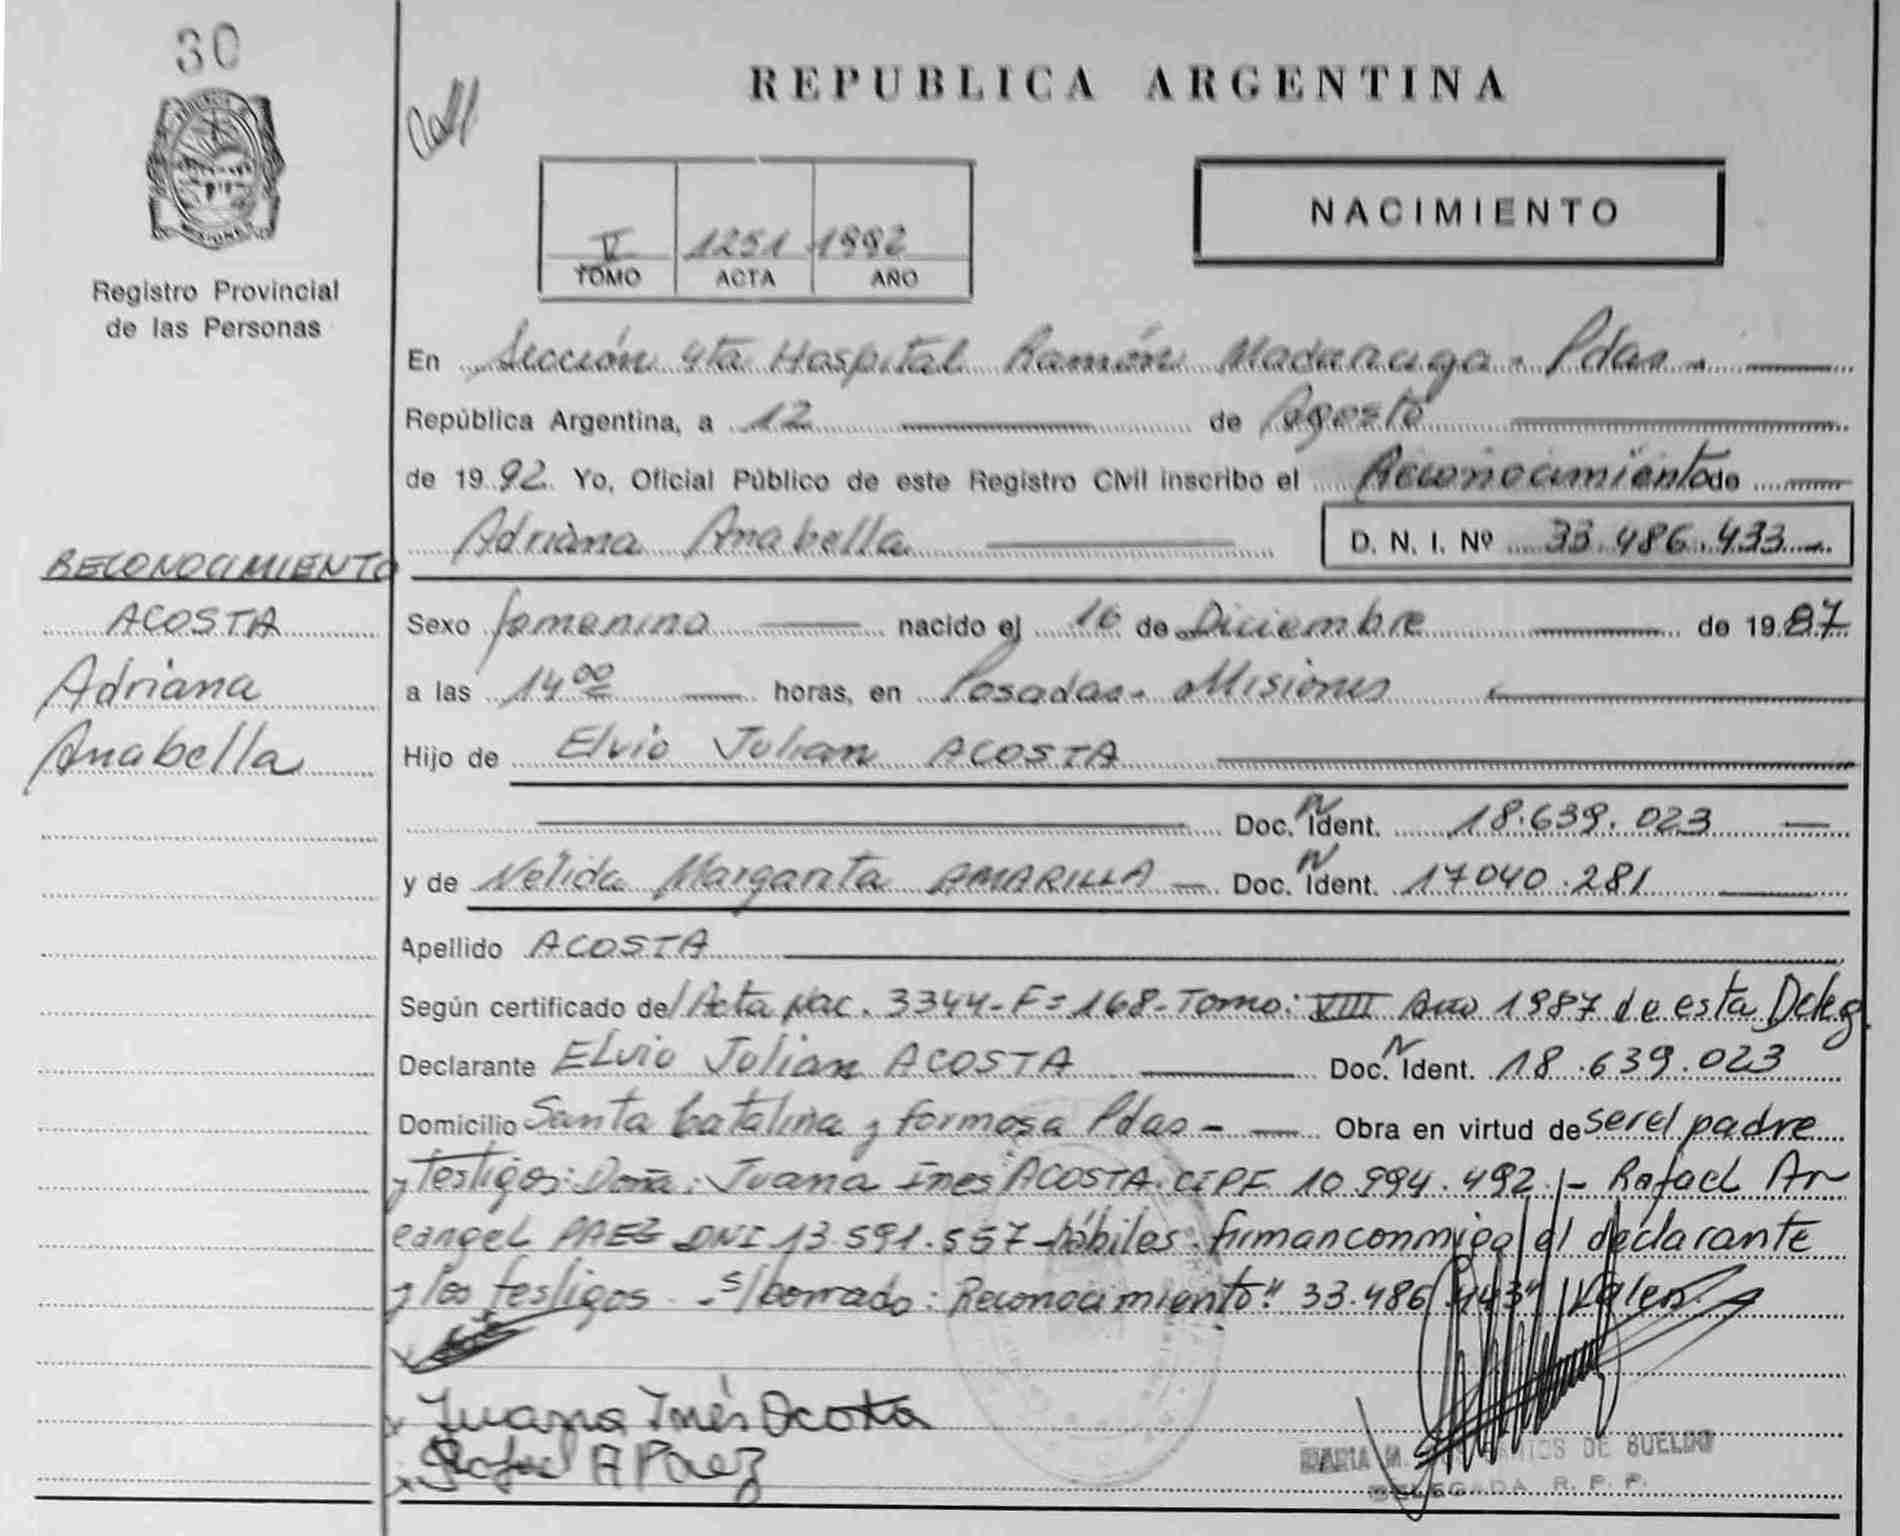 30
REPUBLICA ARGENTINA
NACIMIENTO
V 1251 1992
TOMO ACTA AÑO
MISIONES
Registro Provincial
de las Personas
En Sección 4ta Hospital Ramón Madariaga - Pdas -
República Argentina, a 12 de Agosto
de 1992. Yo, Oficial Público de este Registro Civil inscribo el Reconocimiento de
Adriana Anabella
D. N. I. Nº 33.486.433
RECONOCIMIENTO
ACOSTA
Adriana
Anabella
Sexo femenino nacido el 16 de Diciembre de 1987
a las 14 00 horas, en Posadas - Misiones
Hijo de Elvio Julian ACOSTA
Doc. N Ident. 18.639.023
y de Nélida Margarita AMARILLA Doc. N Ident. 17040.281
Apellido ACOSTA
Según certificado de/ Acta Nac. 3344 - F= 168 - Tomo: VIII Año 1987 de esta Deleg.
Declarante Elvio Julian ACOSTA Doc. N Ident. 18.639.023
Domicilio Santa Catalina y formosa Pdas - Obra en virtud de ser el padre
y testigos: Doña: Juana Ines ACOSTA CIPF 10.994.492 /- Rafael Ar
cangel PAEZ DNI 13.591.557 - hábiles. firman conmigo el declarante
y los testigos. - s/borrado: Reconocimiento" 33.486 443" /Valen
Juana Inés Acosta
Rafael A Paez
MARIA M. DE SUELDO
DELEGADA R. P. P.